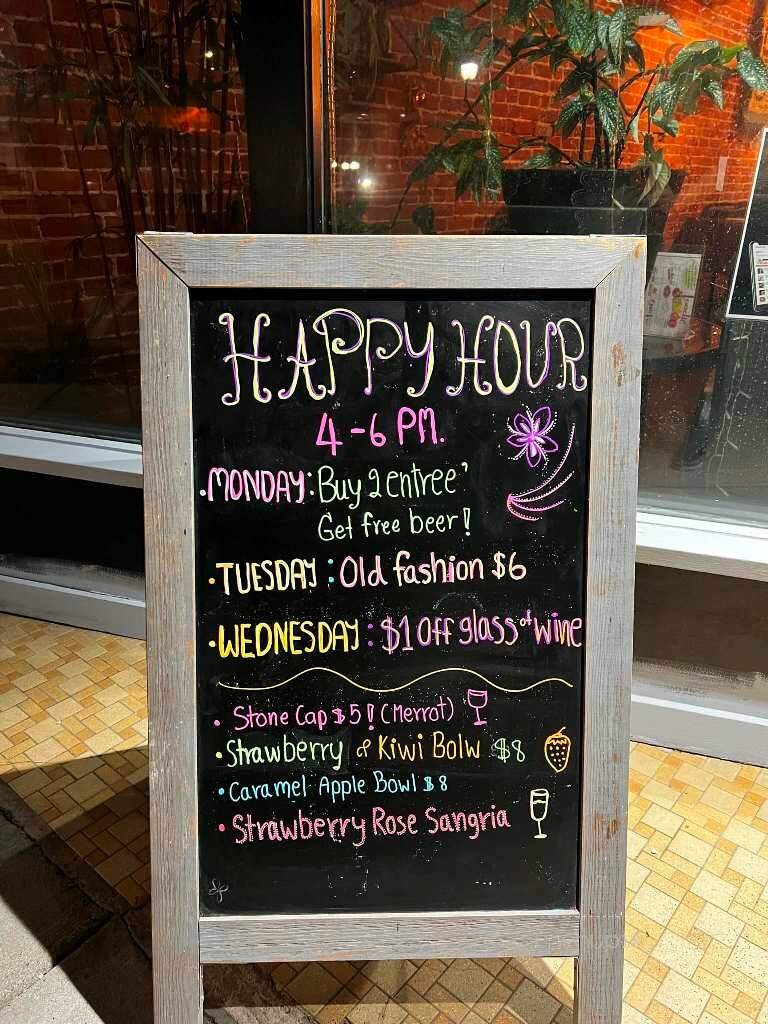 HAPPY HOUR
4-6 PM.
•MONDAY: Buy 2 entree'
Get free beer!
•TUESDAY: Old fashion $6
•WEDNESDAY: $1 Off glass of wine
• Stone Cap $5! (Merrot)
•Strawberry & Kiwi Bolw $8
•Caramel Apple Bowl $8
•Strawberry Rose Sangria